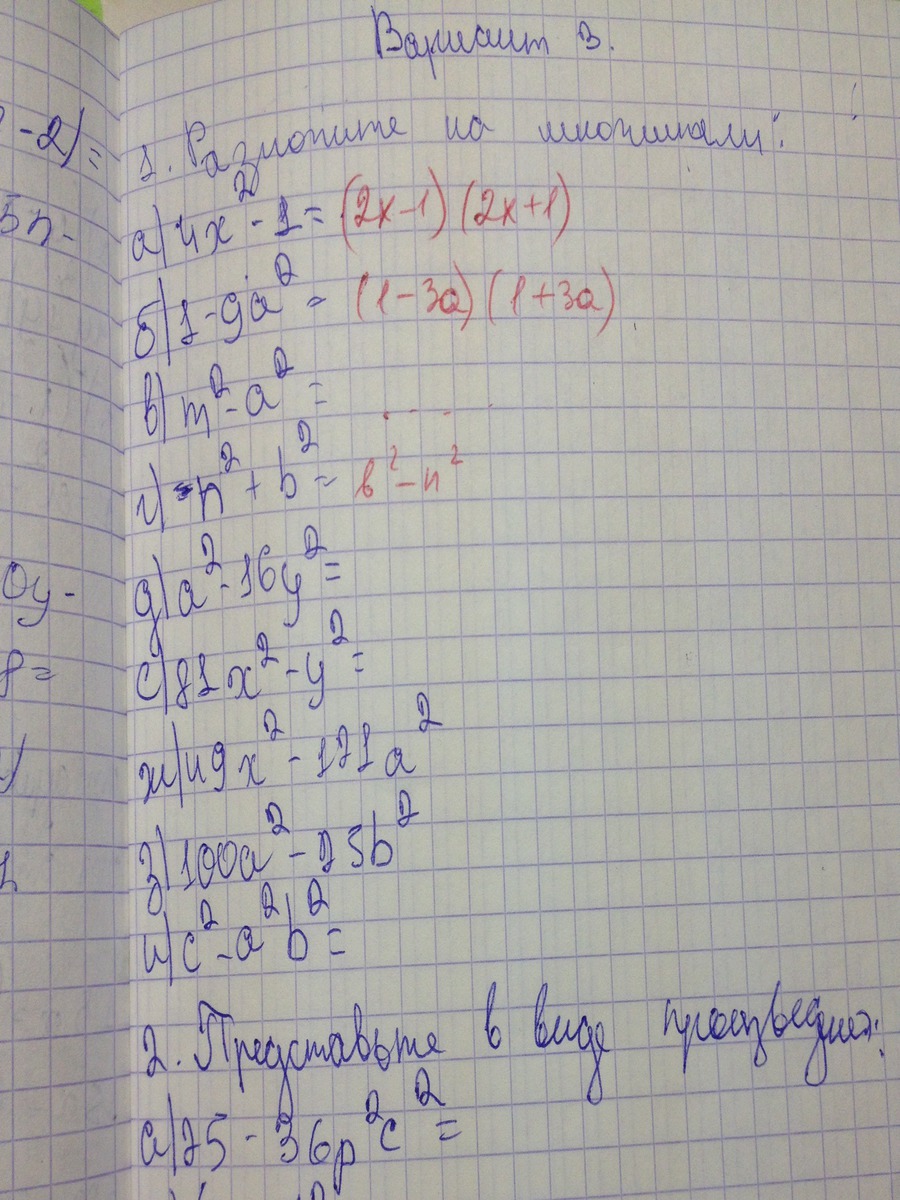 Вариант 3.
-2)=
1. Разложите на множители:
5n-
а) 4x² - 1 = (2x-1) (2x+1)
б) 1 - 9a² = (1-3a) (1+3a)
в) m² - a² =
г) -n² + b² = b² - n²
0y-
д) a² - 16y² =
8=
е) 81x² - y² =
ж) 49x² - 121a²
з) 100a² - 25b²
и) c² - a²b² =
2. Представьте в виде
а) 25 - 36p²c² =